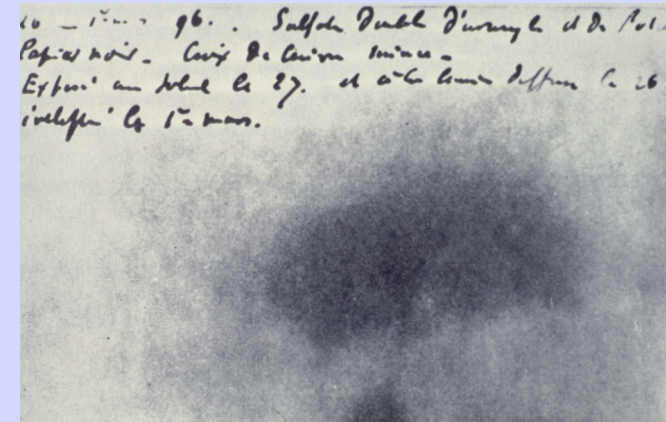 96. Sulfate Double D'uranyle et de Pot
Papier noir. Croix de Cuivre mince.
Exposé au soleil le 27. et à la lumière diffuse le 26
le 1er mars.